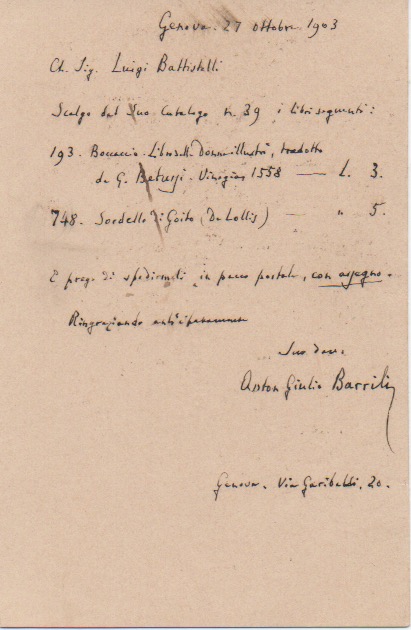 Genova. 27 ottobre 1903
Ch. Sig. Luigi Battistelli
Scelgo dal Suo Catalogo n. 39 i libri seguenti:
193. Boccaccio. Libro delle Donne illustri, tradotto
da G. Betussi. Vinegia 1558 — L. 3.
748. Sordello di Goito, (De Lollis) — " 5.
E prego di spedirmeli in pacco postale, con assegno.
Ringraziando anticipatamente
Suo dev.
Anton Giulio Barrili
Genova. Via Garibaldi, 20.